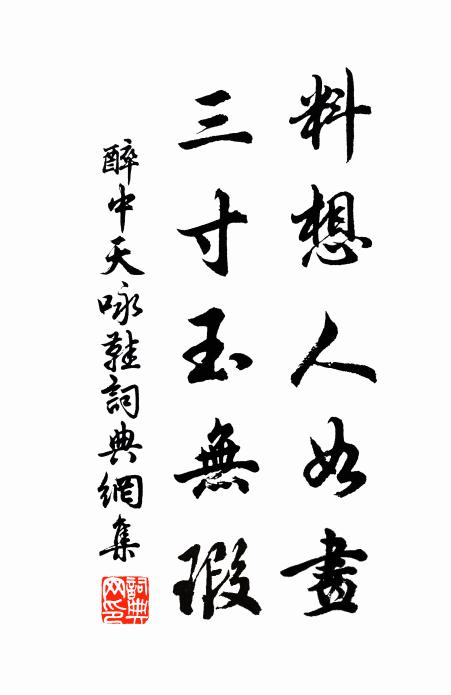 料想人如畫
三寸玉無瑕
醉中天咏鞋詞典網集
詞典网印